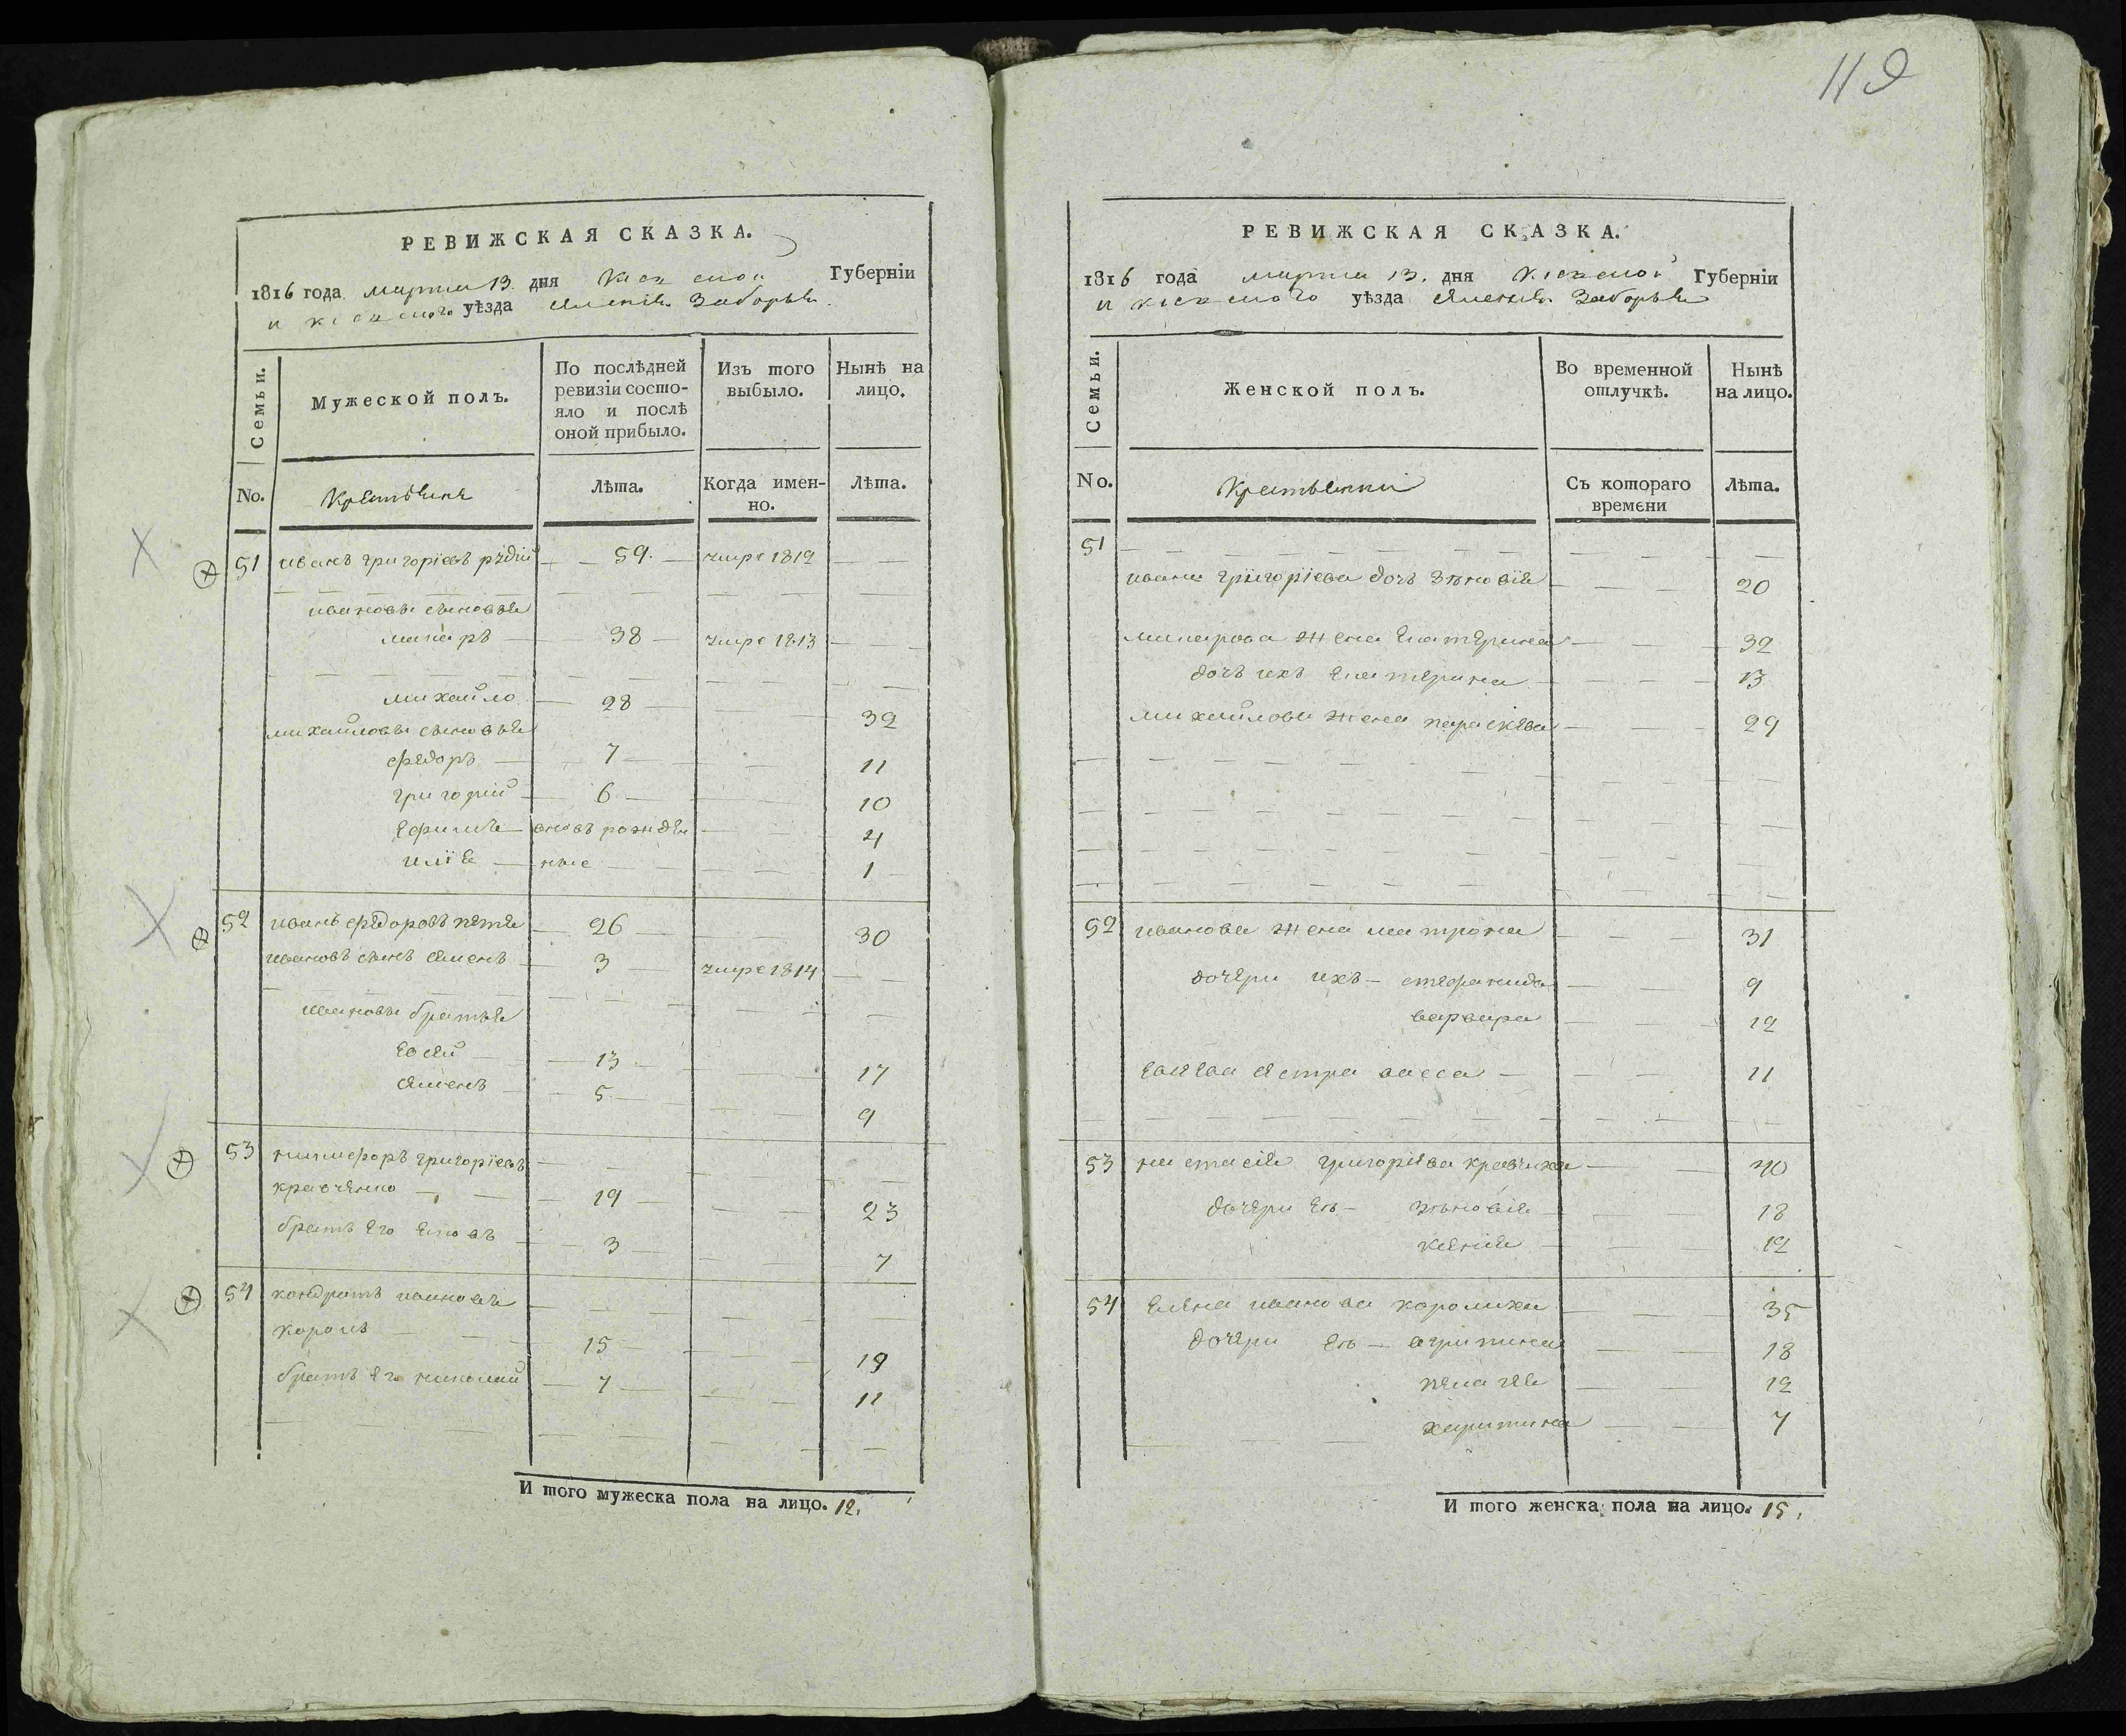 119
РЕВИЖСКАЯ СКАЗКА.
1816 года марта 13 дня Киевской Губерніи
и киевского уѣзда Заборья
Семьи. Мужеской полъ. По послѣдней ревизіи состояло и послѣ оной прибыло. Изъ того выбыло. Нынѣ на лицо.
No. Крестьяне Лѣта. Когда именно. Лѣта.
51 иванъ григоріевъ рудий 59 умре 1812
ивановы сыновья
макаръ 38 умре 1813
михайло 28 32
михайловы сыновья
федоръ 7 11
григорий 6 10
ефимъ вновь рожден 4
илія ные 1
52 иванъ федоровъ петя 26 30
ивановъ сынъ семенъ 3 умре 1814
ивановы братья
евсей 13 17
семенъ 5 9
53 никифоръ григоріевъ
кравченко 19 23
братъ его яковъ 3 7
54 кондратъ ивановъ
король 15 19
братъ его николай 7 11
И того мужеска пола на лицо. 12.
РЕВИЖСКАЯ СКАЗКА.
1816 года марта 13. дня Кіевской Губерніи
и кіевского уѣзда Заборья
Семьи. Женской полъ. Во временной отлучкѣ. Нынѣ на лицо.
No. Крестьянки Съ котораго времени Лѣта.
51
ивана григоріева дочь зѣновія 20
макарова жена екатерина 32
дочь ихъ екатерина 13
михайлова жена параскева 29
52 иванова жена матрона 31
дочери ихъ стефанида 9
варвара 12
евсеева сестра васса 11
53 настасія григоріева кравчиха 40
дочери ея зѣновія 18
ксенія 12
54 елена иванова королиха 35
дочери ея агрипина 18
пелагея 12
харитина 7
И того женска пола на лицо. 15.